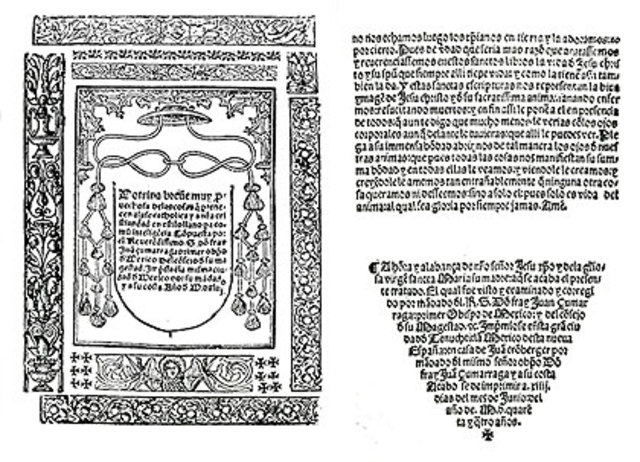 Dotrina breue muy p
uechosa delas cosas q̃ prene
cen ala fe catholica y a n̄ra cris
tiandad en estilo llano pa co
mũ intelig̃cia. Cõpuesta por
el Reuerẽdissimo. S. dõ fray
Juã çumarraga primer obp̃o
d̃ Mexico. Del cõsejo d̃ su ma
gestad. Jmp̃ssa ẽla misma ciu
dad d̃ Mexico por su mãdado
y a su costa. Año d̃ M.dxliij
no nos echamos luego los xp̃ianos en tierra y la adoramos:o
por cierto. Pues de ṽdad que seria mas razõ que acatassemos
y reuerẽciassemos en estos sanctos libros la vida d̃ Jesu chris
to y su sp̃u que siempre alli
biẽ la da. y estas sanctas escripturas nos representan la biua
ymagẽ de Jesu christo y d̃ su sacratissima anima: sanando enfer
mos: resucitando muertos: y en fin assi le ponẽ a el en presencia
de todos q̃ aun te digo que mucho menos le verias cõlos ojos
corporales aunq̃ delante le tuuieras: que alli le puedes ver. Ple
ga a su immensa bõdad abrir nos de tal manera los ojos d̃ nues
tras animas: que pues todas las cosas nos manifiestan su summa
bõdad y en todas ellas le veamos: y viendole le creamos: y
creyẽdole le amemos tan entrañablemente q̃ ninguna otra co
sa queramos ni desseemos sino a solo el: pues solo es vida del
anima: al qual sea gloria por siempre jamas. Amẽ.
¶ A hõrra y alabança de n̄ro señor Jesu xp̃o y dela glio
sa virgẽ sancta Maria su madre: aq̃ se acaba el presen
te tratado. El qual fue visto y examinado y corregi
do por mãdado d̃l. R. S. Dõ fray Juan Çumar
raga: primer Obispo de Mexico: y del cõsejo
d̃ su Magestad. ẽc. Jmprimio se ẽsta grã ciu
dad d̃ Tenuchtitlã Mexico desta nueua
España: en casa de Juã crõberger por
mãdado d̃l mismo señor obp̃o Dõ
fray Juã Çumarraga y a su costa
Acabo se de imprimir a. xiiij.
dias del mes de Junio: del
año de. M.d. quarẽ
ta y q̃tro años.